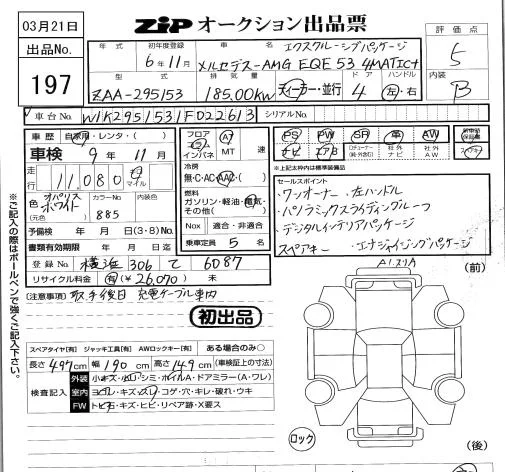 03月21日
ZIP オークション出品票
出品No.
197
年式
初年度登録
車名
評価点
6年11月
エクスクルーシブパッケージ
メルセデス-AMG EQE 53 4MATIC+
5
型式
排気量
ドア
ハンドル
内装
ZAA-295153
185.00Kw
ディーラー・並行
4
左・右
B
車台No.
W1K2951531F022613
シリアルNo.
車歴
自家用・レンタ・( )
車検
9年 11月
走行
11,080
キロ
マイル
色
(元色)
オパリス
ホワイト
カラーNo.
885
内装色
予備検 年 月 日(3・8)No.
書類有効期限 年 月 日迄
登録No.
横浜 306 て 6087
リサイクル料金 有(¥ 26,070) 未
フロア
コラム
インパネ
AT
MT
速
冷房
無・C・AC・AAC・( )
燃料
ガソリン・軽油・電気・
その他( )
Nox
適合・非適合
乗車定員
5 名
PS
PW
SR
革
AW
新車時
保証書
ナビ
エアB
TVチューナー
(純・外含む)
社外
ナビ
社外
AW
※上記太枠内は標準装備品
セールスポイント
・ワンオーナー ・左ハンドル
・パノラミックスライディングルーフ
・デジタルインテリアパッケージ
・スペアキー ・エナジャイジングパッケージ
(注意事項) 取手後日 充電ケーブル車内
初出品
※ご記入の際はボールペンで強くご記入下さい。
スペアタイヤ[有] ジャッキ工具[有] AWロックキー[有] ある場合のみ○
長さ 497cm 幅 190cm 高さ 149cm (車検証上の寸法)
検査記入
外装
小キズ・凹・シミ・ホイルA・ドアミラー(A・ワレ)
室内
ヨゴレ・キズ・スリ・コゲ・穴・キレ・破れ・ウキ
FW
トビ石・キズ・ヒビ・リペア跡・X要ス
(前)
ロック
(後)